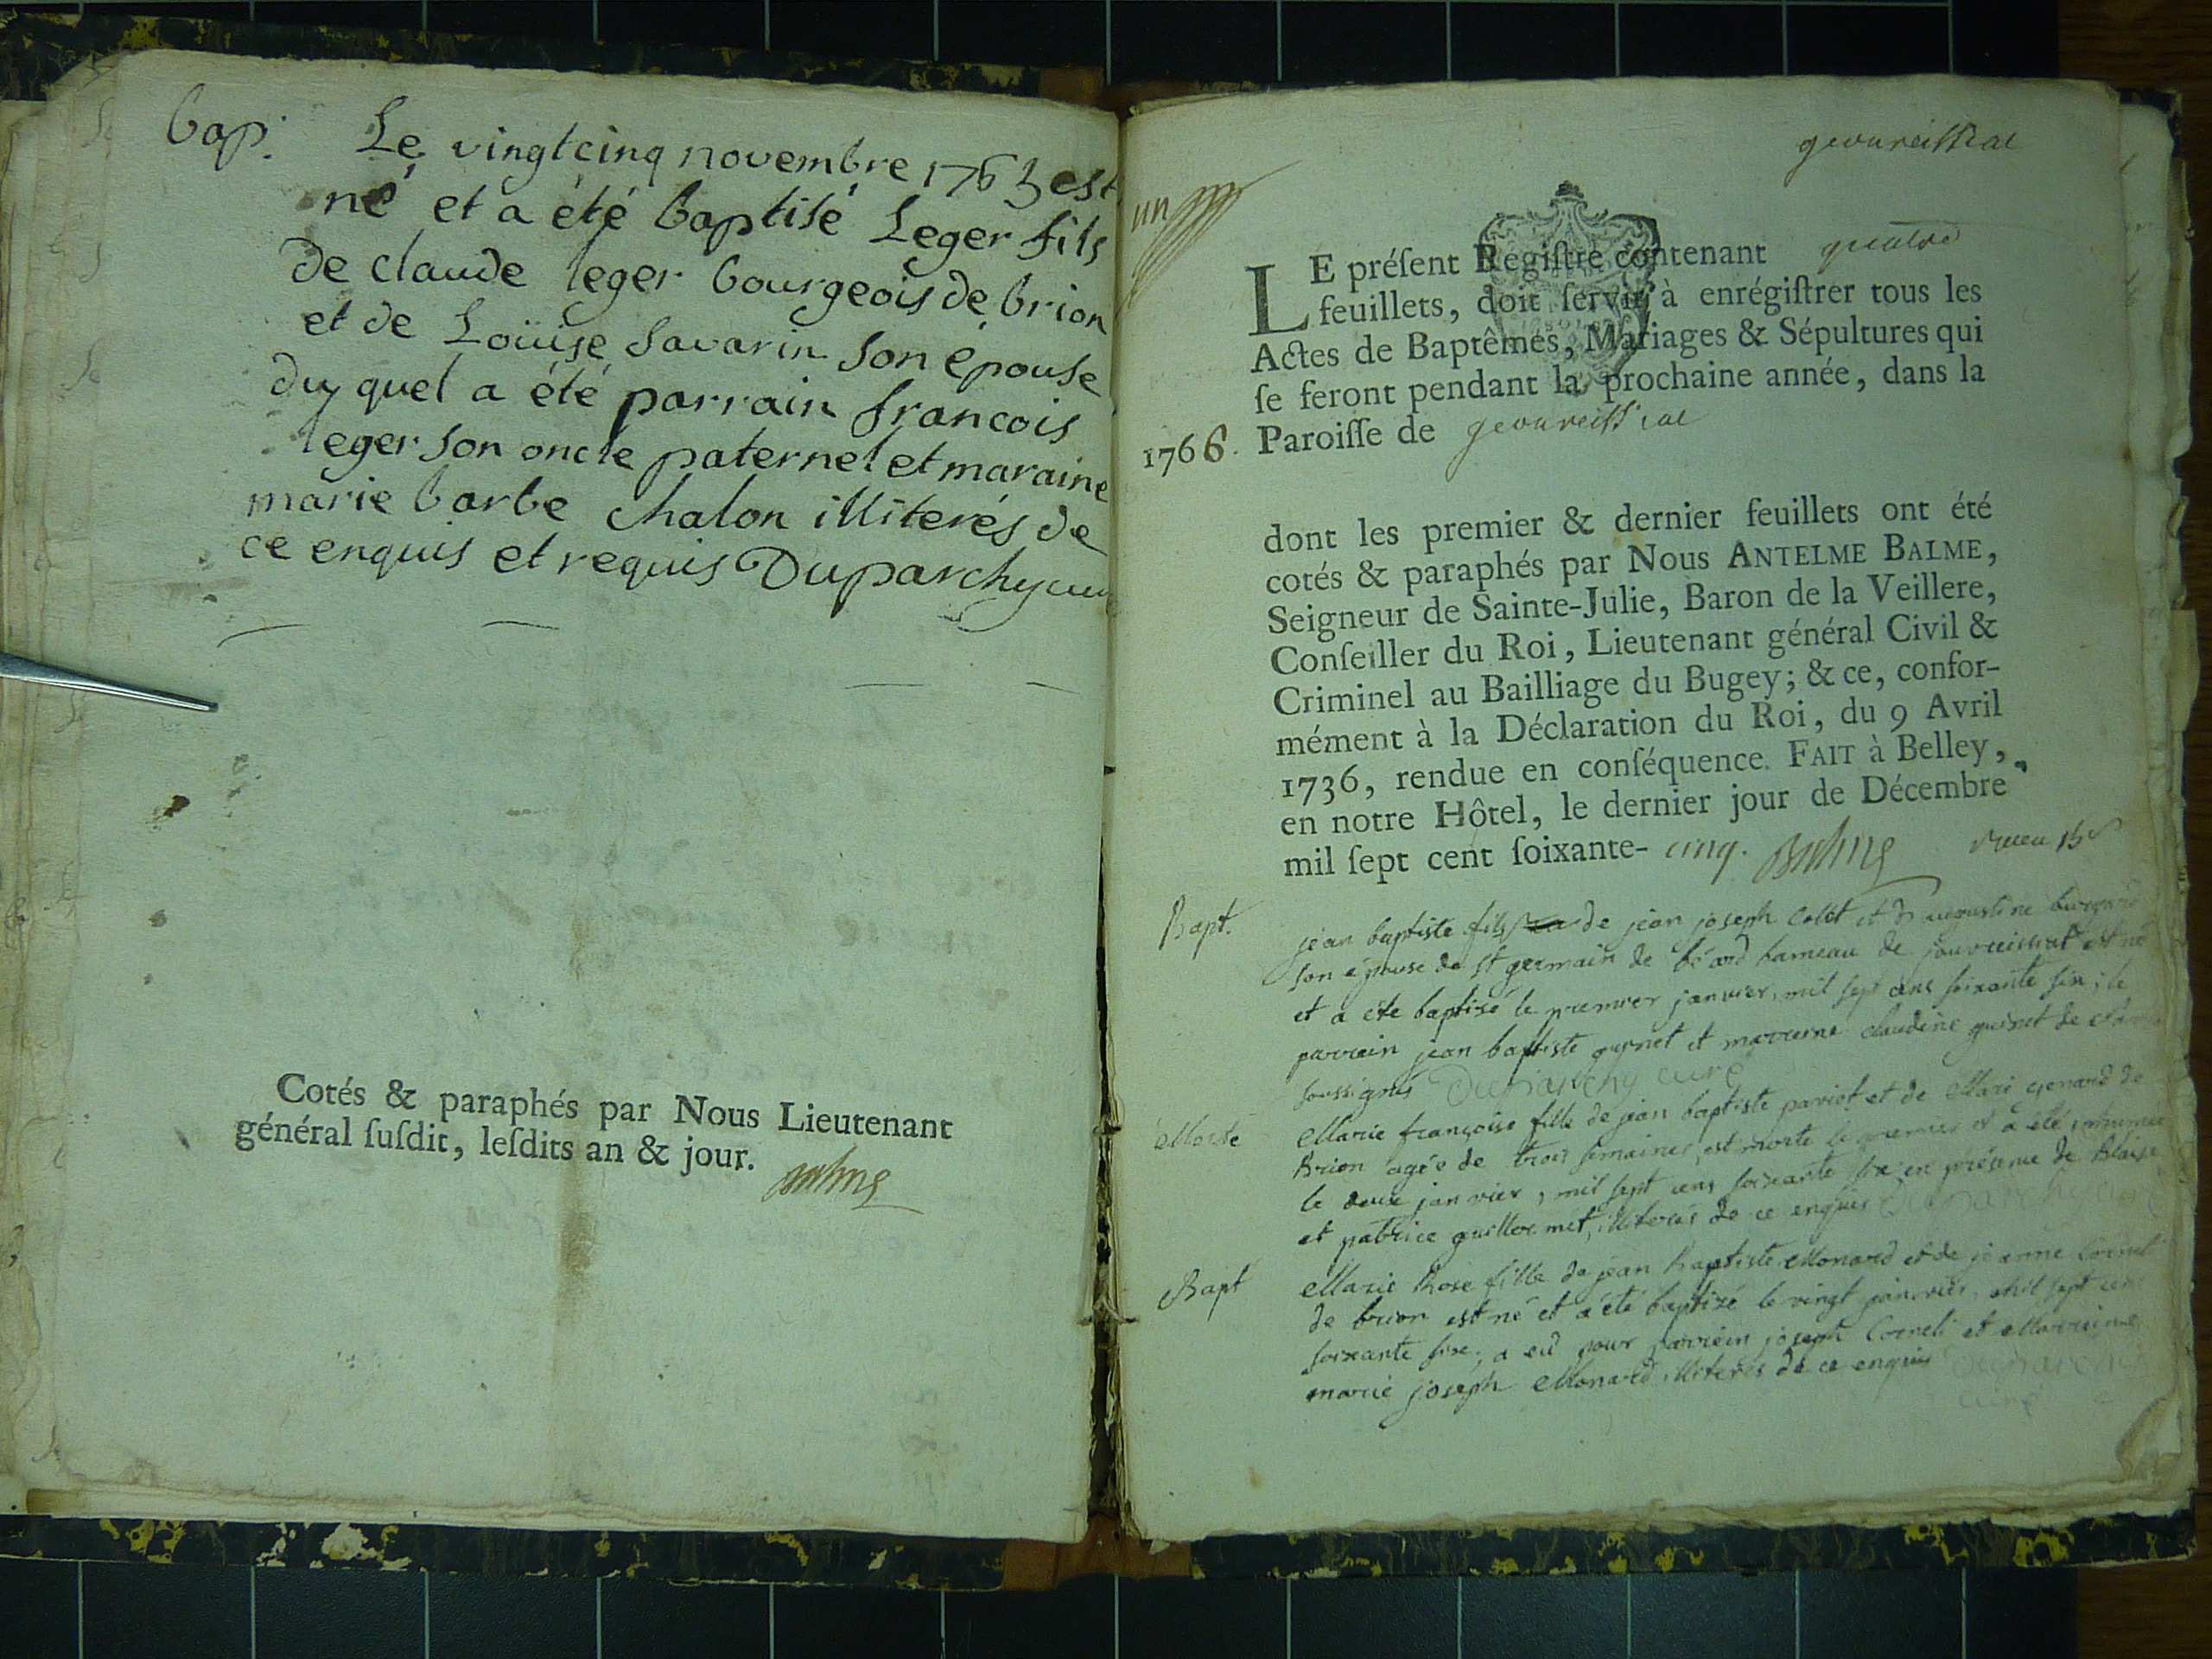 bap. Le vingtcinq novembre 1763 est
né et a été baptisé Leger fils
de claude leger bourgeois de brion
et de Loüise Savarin son épouse
duquel a été parrain francois
leger son oncle paternel et maraine
marie barbe chalon illiterés de
ce enquis et requis Duparchy
Cotés & paraphés par Nous Lieutenant
général ſuſdit, leſdits an & jour.
Balme
geovreissiat
un
LE préſent Regiſtre contenant quatre
feuillets, doit ſervir à enrégiſtrer tous les
Actes de Baptêmes, Mariages & Sépultures qui
ſe feront pendant la prochaine année, dans la
1766. Paroiſſe de geovreissiat
dont les premier & dernier feuillets ont été
cotés & paraphés par Nous ANTELME BALME,
Seigneur de Sainte-Julie, Baron de la Veillere,
Conſeiller du Roi, Lieutenant général Civil &
Criminel au Bailliage du Bugey; & ce, confor-
mément à la Déclaration du Roi, du 9 Avril
1736, rendue en conſéquence. FAIT à Belley,
en notre Hôtel, le dernier jour de Décembre
mil ſept cent ſoixante- cinq. Balme
Bapt. jean baptiste fils de jean joseph Collet et d'augustine
son épouse de st germain de béard hameau de jouvreissiat est né
et a été baptisé le premier janvier, mil sept cens soixante six; le
parrein jean baptiste guynet et marreine claudine guinet de
soussignés Duparchy curé
Morte Marie françoise fille de jean baptiste pariet et de Marie genard de
Brion agée de trois semaines, est morte le premier et a été inhumée
le deux janvier, mil sept cens soixante six en présence de Blaise
et patrice guillermet, illiterés de ce enquis
Bapt Marie Rose fille de jean baptiste Monard et de jeanne Cornet
de brion est né et a été baptizé le vingt janvier, mil sept cens
soixante six; a eu pour parrein joseph et Marreine
marie joseph Monard illiterés de ce enquis Duparchy
curé